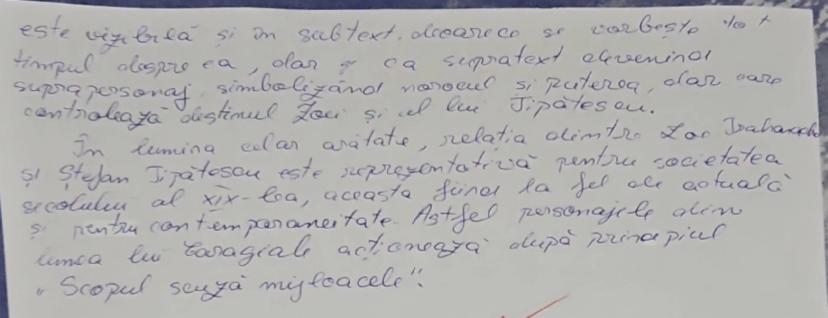 este vizibilă și în subtext, deoarece se vorbește tot
timpul despre ea, dar și ca supratext devenind
suprapersonaj, simbolizând norocul si puterea, dar care
controlează destinul Zoei și al lui Tipătescu.
În lumina celor arătate, relația dintre Zoe Trahanache
și Ștefan Tipătescu este reprezentativă pentru societatea
secolului al XIX-lea, aceasta fiind la fel de actuală
și pentru contemporaneitate. Astfel personajele din
lumea lui Caragiale acționează după principiul
„Scopul scuză mijloacele".